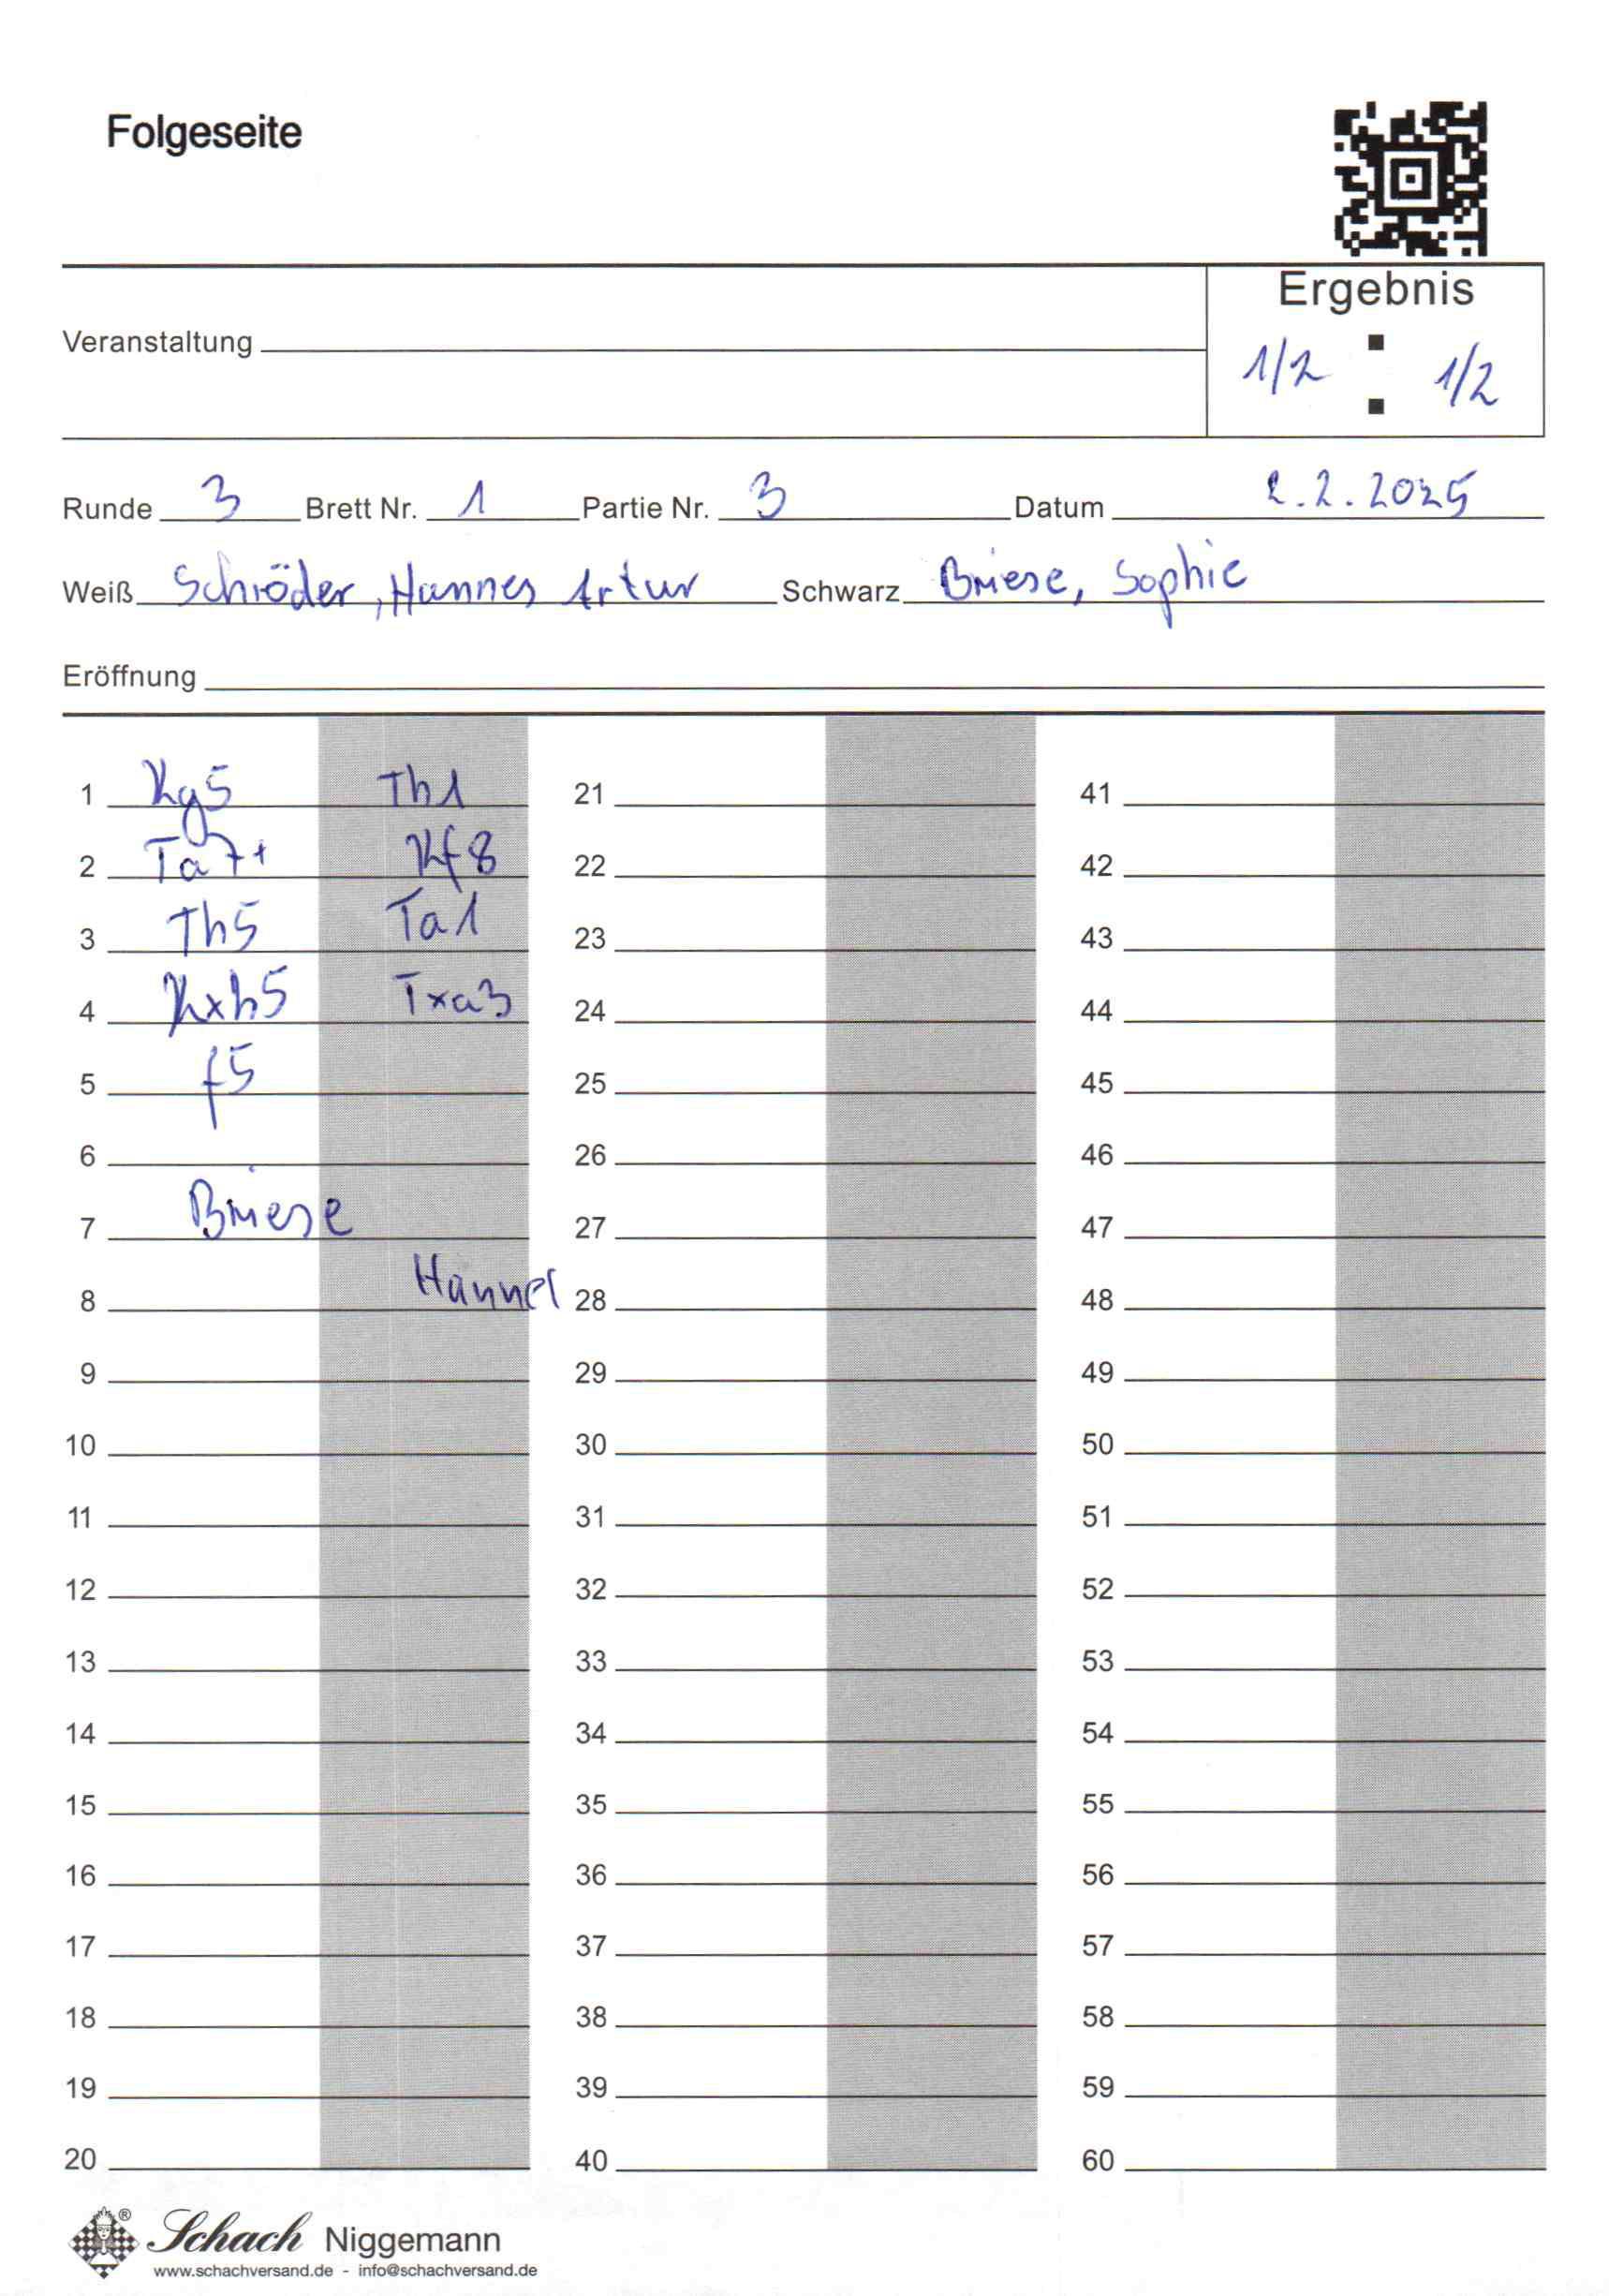 Folgeseite
Ergebnis
Veranstaltung
1/2 : 1/2
Runde 3 Brett Nr. 1 Partie Nr. 3 Datum 2.2.2025
Weiß Schröder, Hannes Artur Schwarz Briese, Sophie
Eröffnung
1 Kg5 Th1 21 41
2 Ta7+ Kf8 22 42
3 Th5 Ta1 23 43
4 Kxh5 Txa3 24 44
5 f5 25 45
6 26 46
7 Briese 27 47
8 Hannes 28 48
9 29 49
10 30 50
11 31 51
12 32 52
13 33 53
14 34 54
15 35 55
16 36 56
17 37 57
18 38 58
19 39 59
20 40 60
® Schach Niggemann
www.schachversand.de - info@schachversand.de